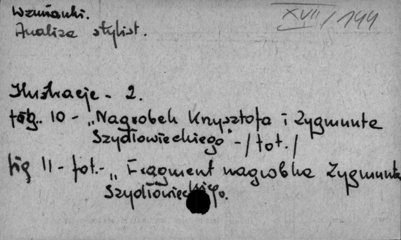 Wzmianki.
XVII/144
Analiza stylist.
Ilustracje - 2.
fig. 10 - „Nagrobek Krzysztofa i Zygmunta
Szydłowieckiego" - /fot./
fig 11 - fot. - „Fragment nagrobka Zygmunta
Szydłowieckiego.